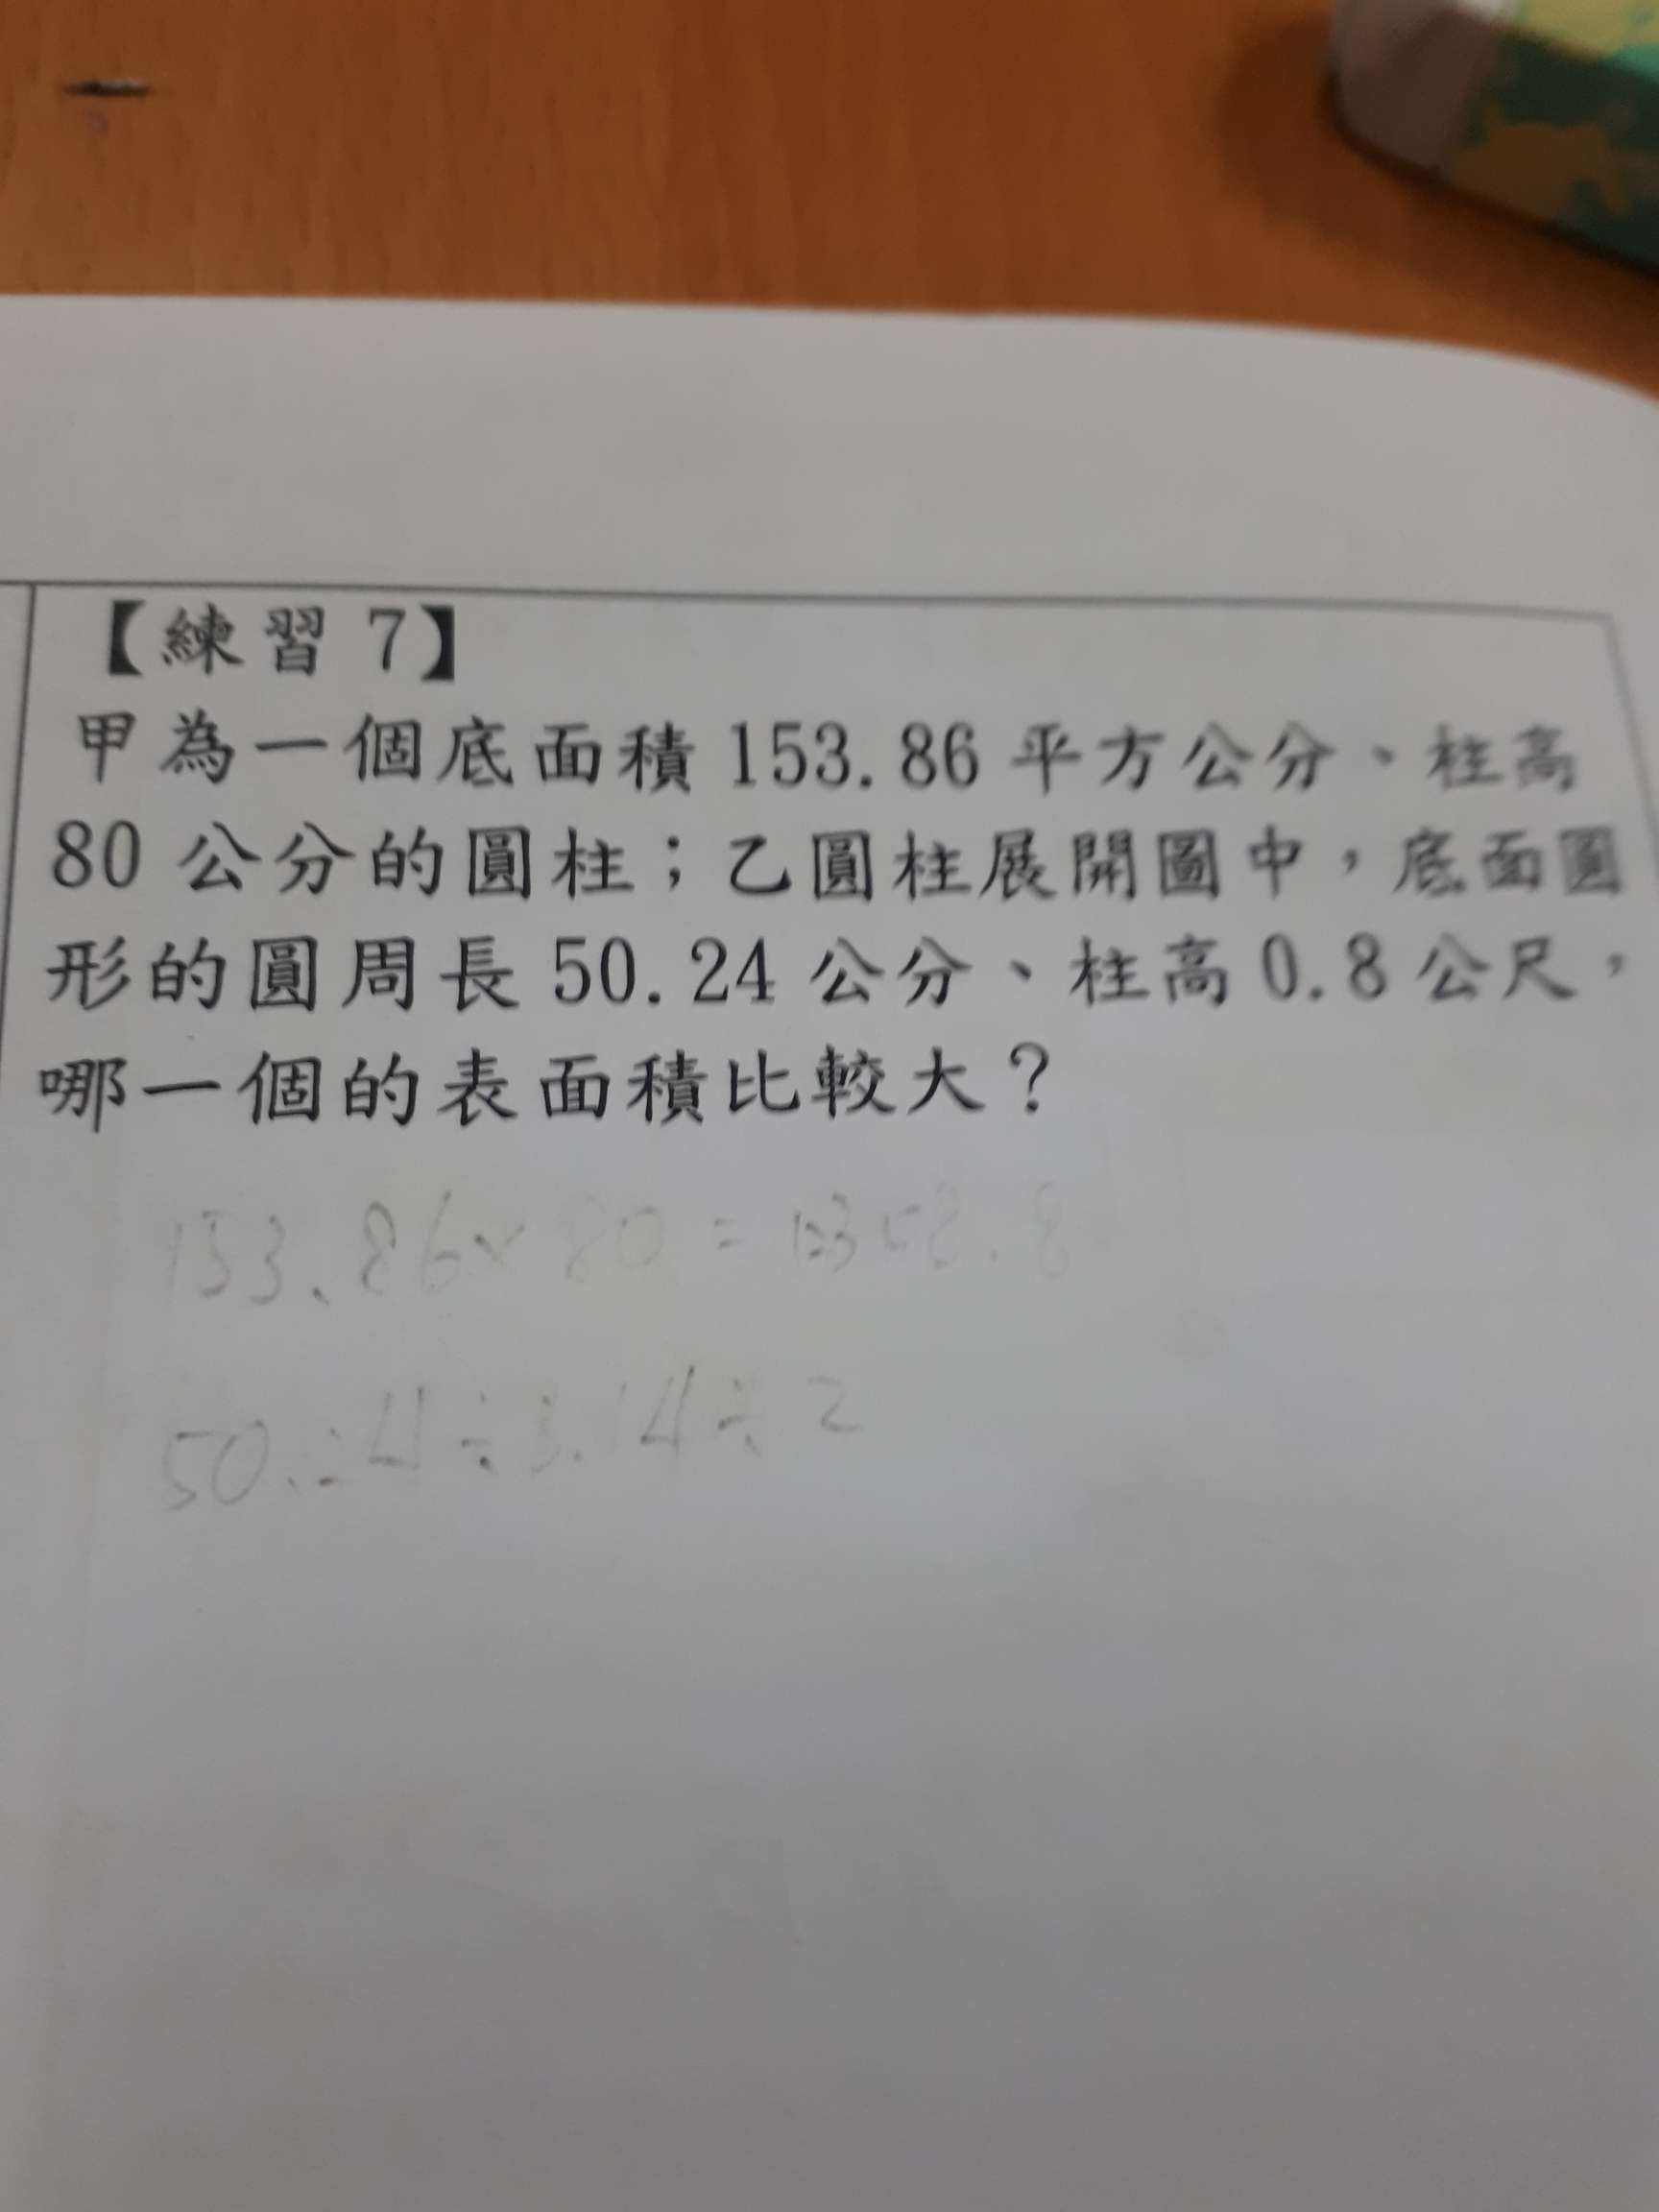 【練習 7】
甲為一個底面積 153.86 平方公分、柱高
80 公分的圓柱；乙圓柱展開圖中，底面圓
形的圓周長 50.24 公分、柱高 0.8 公尺，
哪一個的表面積比較大？
153.86×80=
50.24÷3.14÷2